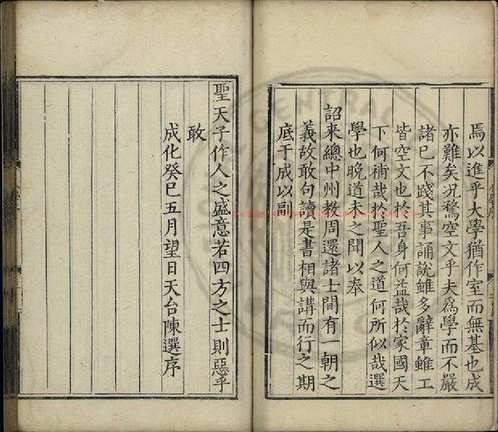 焉以進乎大學猶作室而無基也成
亦難矣况騖空文乎夫為學而不嚴
諸己不踐其事誦説雖多辭章雖工
皆空文也於吾身何益哉於家國天
下何補哉於聖人之道何所似哉選
學也晚道未之聞以奉
詔来總中州教周還諸士間有一朝之
義故敢句讀是書相與講而行之期
底于成以副
聖天子作人之盛意若四方之士則惡乎
敢
成化癸巳五月望日天台陳選序